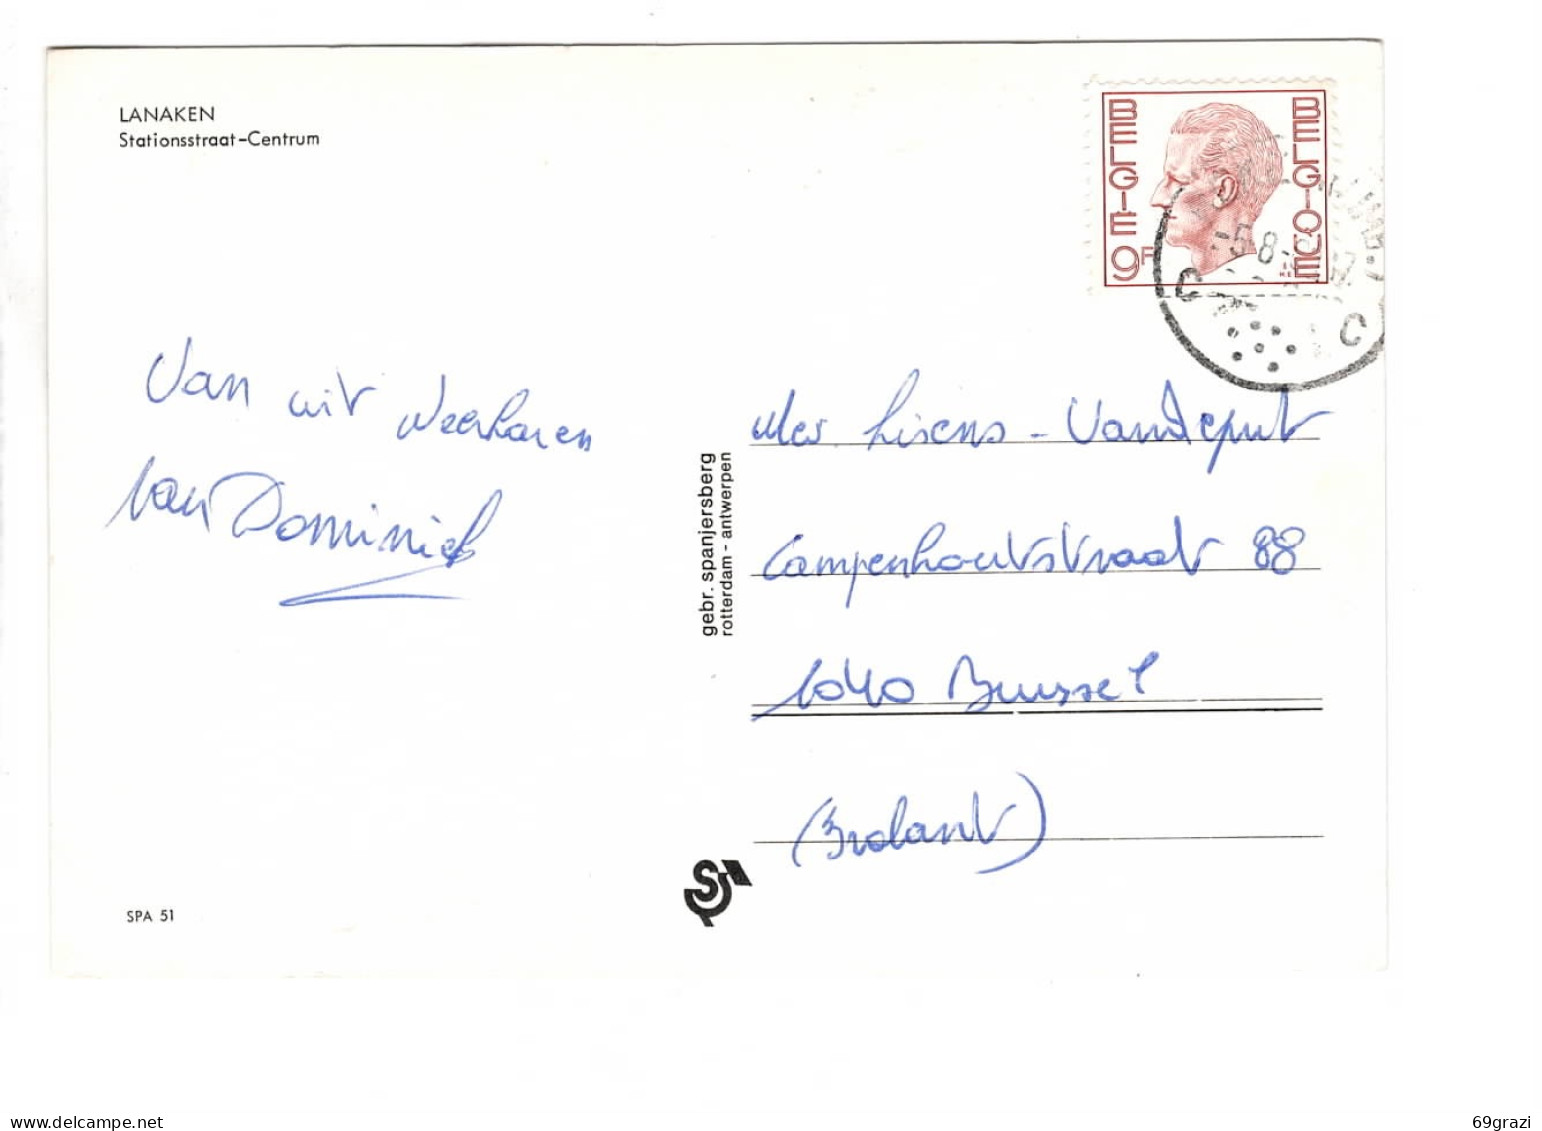 LANAKEN
Stationsstraat-Centrum
BELGIE
BELGIQUE
9F
-5.8
C
C
Van uit Neerharen
Van Dominick
gebr. spanjersberg
rotterdam - antwerpen
Mer. Lisens - Vandeput
Campenhoutstraat 88
1040 Brussel
(Brabant)
SPA 51
www.delcampe.net
69grazi